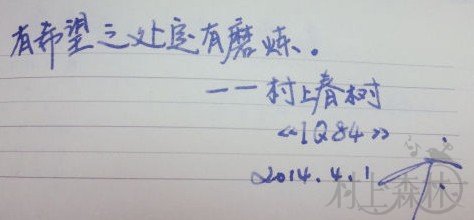 有希望之处定有磨炼。
——村上春树
《1Q84》
2014.4.1
村上森林